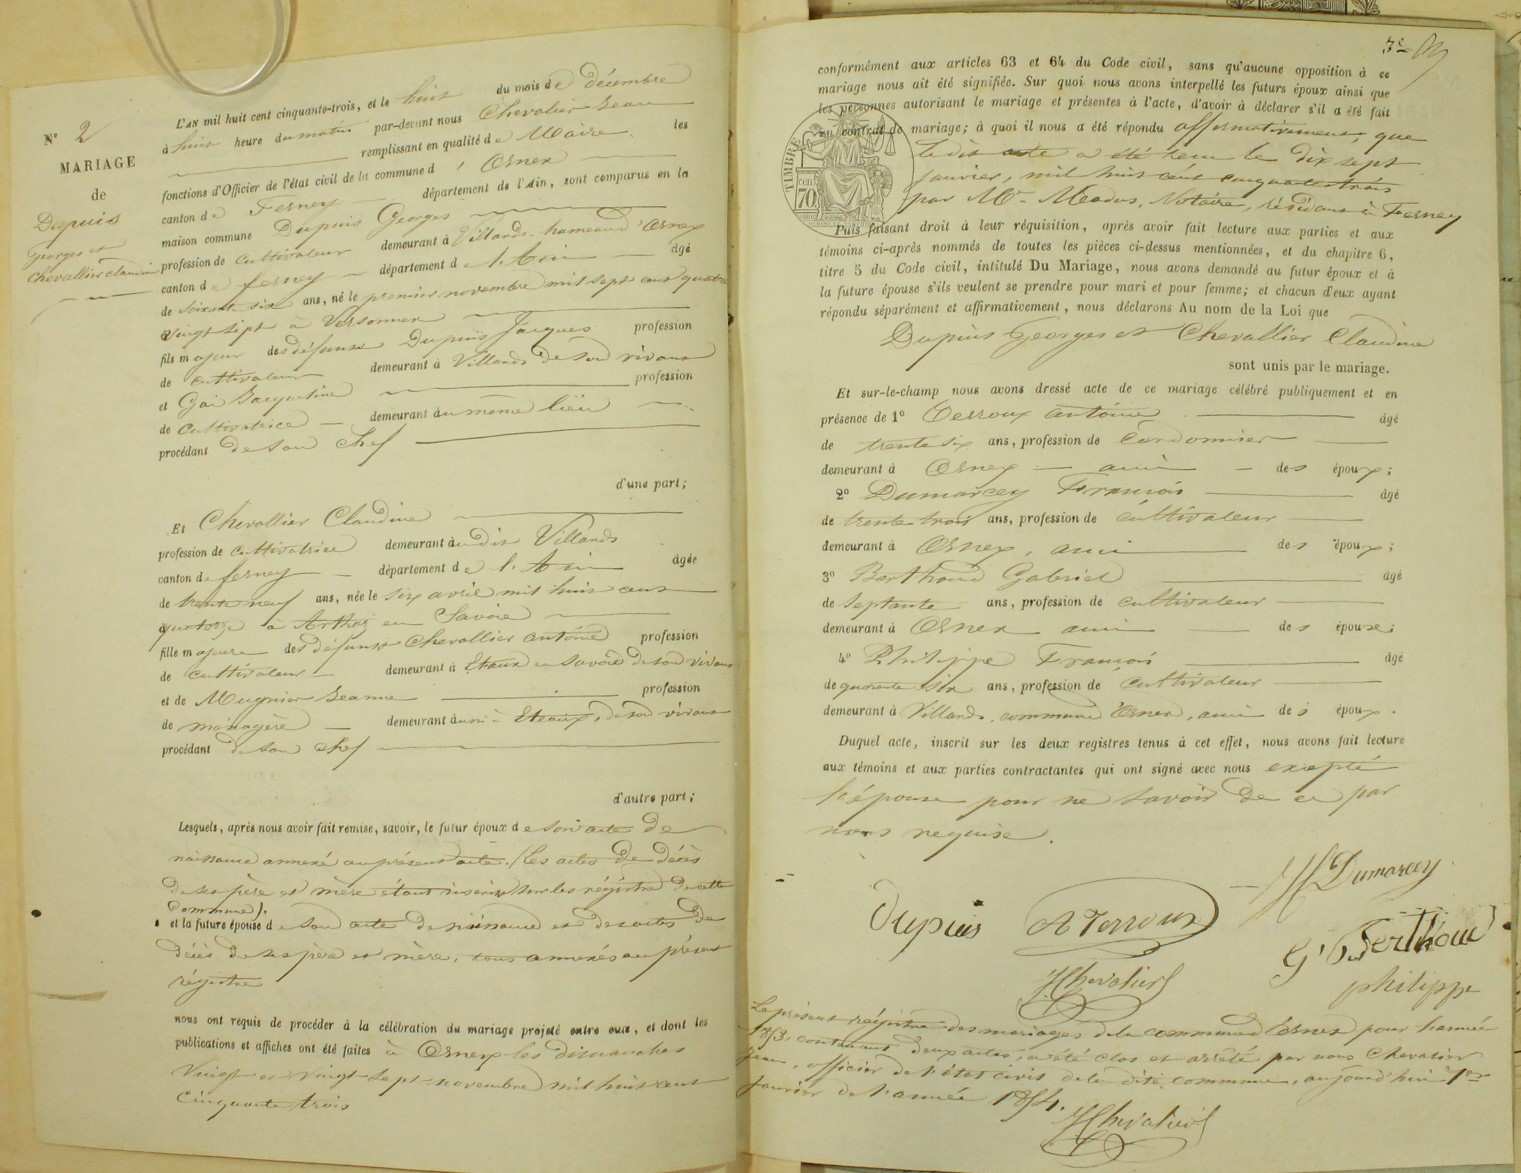 N° 2
MARIAGE
de
Dupuis
Georges et
Chevallier Claudine
L'AN mil huit cent cinquante-trois, et le huit du mois de décembre
à huit heure du matin par-devant nous Chevalier Jean
remplissant en qualité de Maire les
fonctions d'Officier de l'état civil de la commune d' Ornex
canton de Ferney département de l'Ain, sont comparus en la
maison commune Dupuis Georges
profession de cultivateur demeurant à Villards hameau d'Ornex
canton de ferney département de l'Ain âgé
de soixante six ans, né le premier novembre mil sept cent quatre
vingt sept à Versonnex
fils majeur des défunts Dupuis Jacques profession
de cultivateur demeurant à Villards de son vivant
et Gai Jacqueline profession
de cultivatrice demeurant au même lieu
procédant de son chef
d'une part;
Et Chevallier Claudine
profession de cultivatrice demeurant au dit Villards
canton de ferney département de l'Ain âgée
de trente neuf ans, née le six avril mil huit cent
quatorze à en Savoie
fille majeure des défunts Chevallier Antoine profession
de cultivateur demeurant à Etaux en Savoie de son vivant
et de Mugnier Jeanne profession
de ménagère demeurant aussi à Etaux, de son vivant
procédant de son chef
d'autre part;
Lesquels, après nous avoir fait remise, savoir, le futur époux de son acte de
naissance annexé au présent acte. (les actes de décès
de ses père et mère étant inscrits sur les régistres de cette
commune).
et la future épouse de son acte de naissance et des actes de
décès de ses père et mère, tous annexés au présent
régistre
nous ont requis de procéder à la célébration du mariage projeté entre eux, et dont les
publications et affiches ont été faites à Ornex les dimanches
vingt et vingt-sept novembre mil huit cent
cinquante trois
3e
conformément aux articles 63 et 64 du Code civil, sans qu'aucune opposition à ce
mariage nous ait été signifiée. Sur quoi nous avons interpellé les futurs époux ainsi que
les personnes autorisant le mariage et présentes à l'acte, d'avoir à déclarer s'il a été fait
un contrat de mariage; à quoi il nous a été répondu affirmativement, que
le dit acte a été tenu le dix sept
janvier, mil huit cent cinquante trois
par Me Notaire, résidant à Ferney
TIMBRE
70 cent
Puis faisant droit à leur réquisition, après avoir fait lecture aux parties et aux
témoins ci-après nommés de toutes les pièces ci-dessus mentionnées, et du chapitre 6,
titre 5 du Code civil, intitulé Du Mariage, nous avons demandé au futur époux et à
la future épouse s'ils veulent se prendre pour mari et pour femme; et chacun d'eux ayant
répondu séparément et affirmaticement, nous déclarons Au nom de la Loi que
Dupuis Georges et Chevallier Claudine
sont unis par le mariage.
Et sur-le-champ nous avons dressé acte de ce mariage célébré publiquement et en
présence de 1° Terroux Antoine âgé
de trente six ans, profession de Cordonnier
demeurant à Ornex ami des époux;
2° Dumarcey François âgé
de trente trois ans, profession de cultivateur
demeurant à Ornex, ami des époux;
3° Berthoud Gabriel âgé
de septante ans, profession de cultivateur
demeurant à Ornex ami des époux;
4° Philippe François âgé
de quarante six ans, profession de cultivateur
demeurant à Villards, commune d'Ornex, ami des époux.
Duquel acte, inscrit sur les deux registres tenus à cet effet, nous avons fait lecture
aux témoins et aux parties contractantes qui ont signé avec nous excepté
l'épouse pour ne savoir de ce par
nous requise.
Dumarcey
Dupuis A Terroux
G. Berthoud
J Chevalier
philippe
Le présent régistre des mariages de la commune d'Ornex pour l'année
1853, contenant deux actes, a été clos et arrêté par nous Chevalier
Jean, officier de l'état civil de la dite commune, aujourd'hui 1er
Janvier de l'année 1854.
J Chevalier